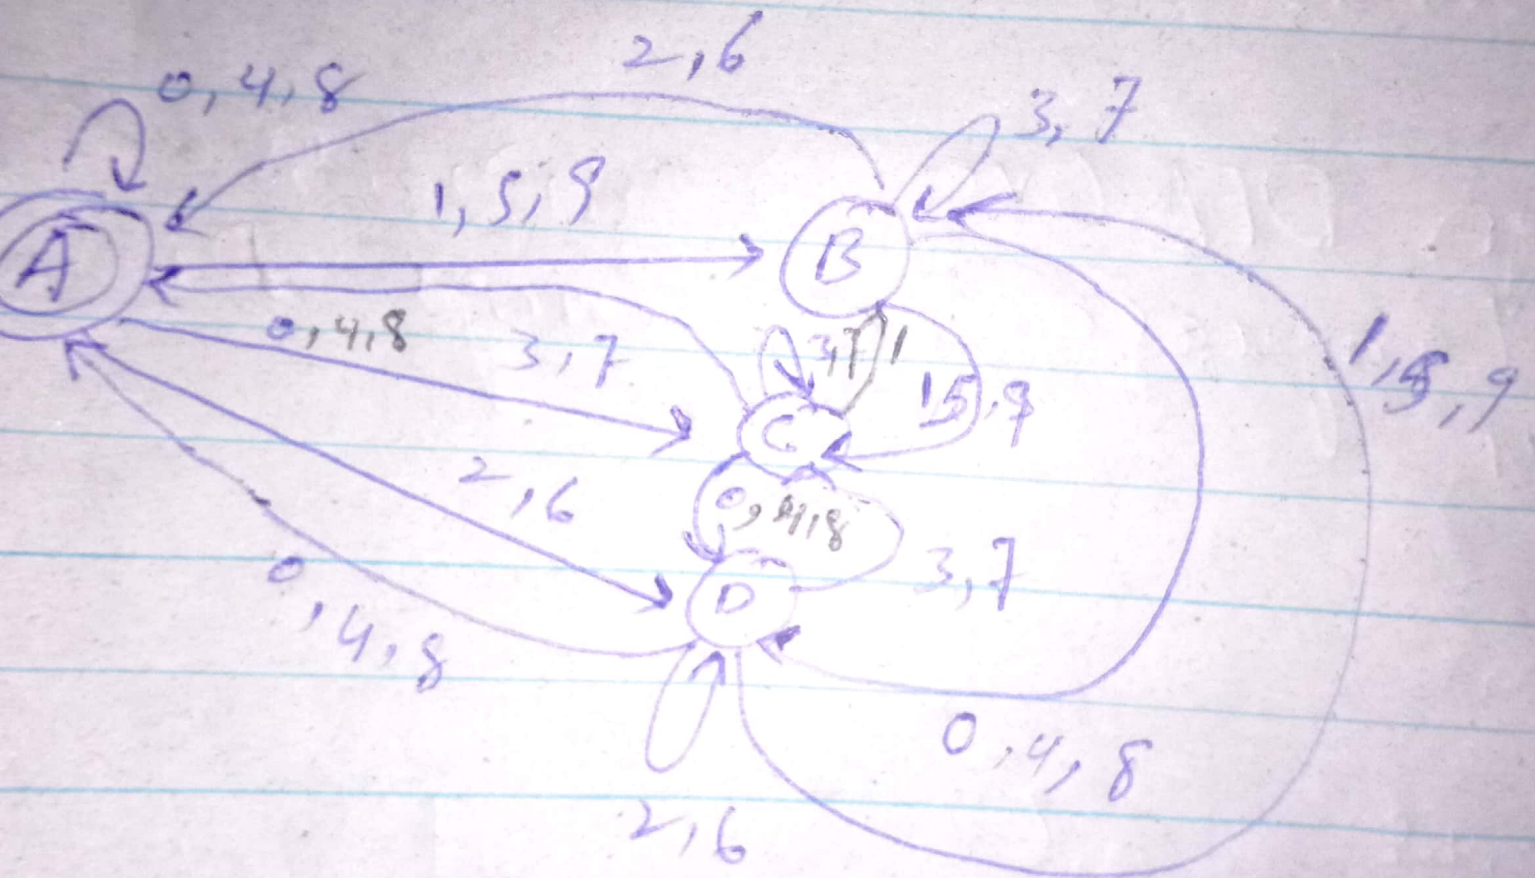 2,6
0,4,8
3,7
1,5,9
A
B
0,4,8
3,7
3,7
1
1,5,9
1,5,9
C
2,6
0,4,8
3,7
D
0,4,8
0,4,8
2,6